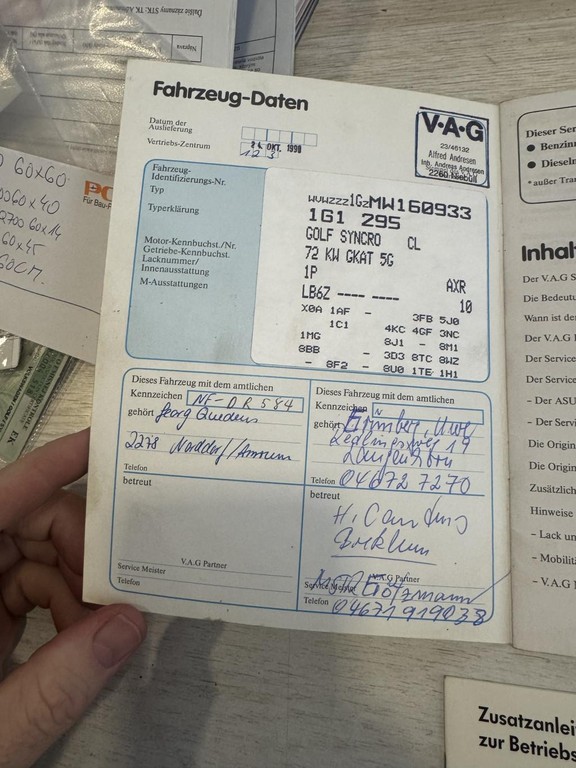 Další záznamy STK, TK, Adm
Náprava
60x60
60x40
2700 60x14
60x45
60CM.
Für Bau-P
Fahrzeug-Daten
Datum der
Auslieferung
24. OKT. 1990
Vertriebs-Zentrum
123
V·A·G
23/46132
Alfred Andresen
Inh. Andreas Andresen
2260 Niebüll
Fahrzeug-
Identifizierungs-Nr.
Typ
Typerklärung
Motor-Kennbuchst./Nr.
Getriebe-Kennbuchst.
Lacknummer/
Innenausstattung
M-Ausstattungen
WVWZZZ1GZMW160933
1G1 295
GOLF SYNCRO CL
72 KW GKAT 5G
1P AXR
LB6Z ---- ---- 10
X0A 1AF - 3FB 5J0
1C1 4KC 4GF 3NC
1MG 8J1 - 8M1
8BB - 3D3 8TC 8WZ
- 8F2 - 8U0 1TE 1H1
Dieses Fahrzeug mit dem amtlichen
Kennzeichen NF-DR 584
gehört Georg Quedens
2278 Norddorf/Amrum
Telefon
betreut
V.A.G Partner
Service Meister
Telefon
Dieses Fahrzeug mit dem amtlichen
Kennzeichen N
gehört Uwe
19
Langenhorn
Telefon 04672 7270
betreut
H.
V.A.G Partner
Götzmann
Telefon 04671 919038
Dieser Ser
● Benzin
● Dieseln
*außer Tran
Inhal
Der V.A.G S
Die Bedeutu
Wann ist der
Der V.A.G
Der Service
Der Service
– Der ASU
– Der Servi
Die Origin
Die Origin
Zusätzlich
Hinweise
– Lack un
– Mobilit
– V.A.G
Zusatzanlei
zur Betriebs